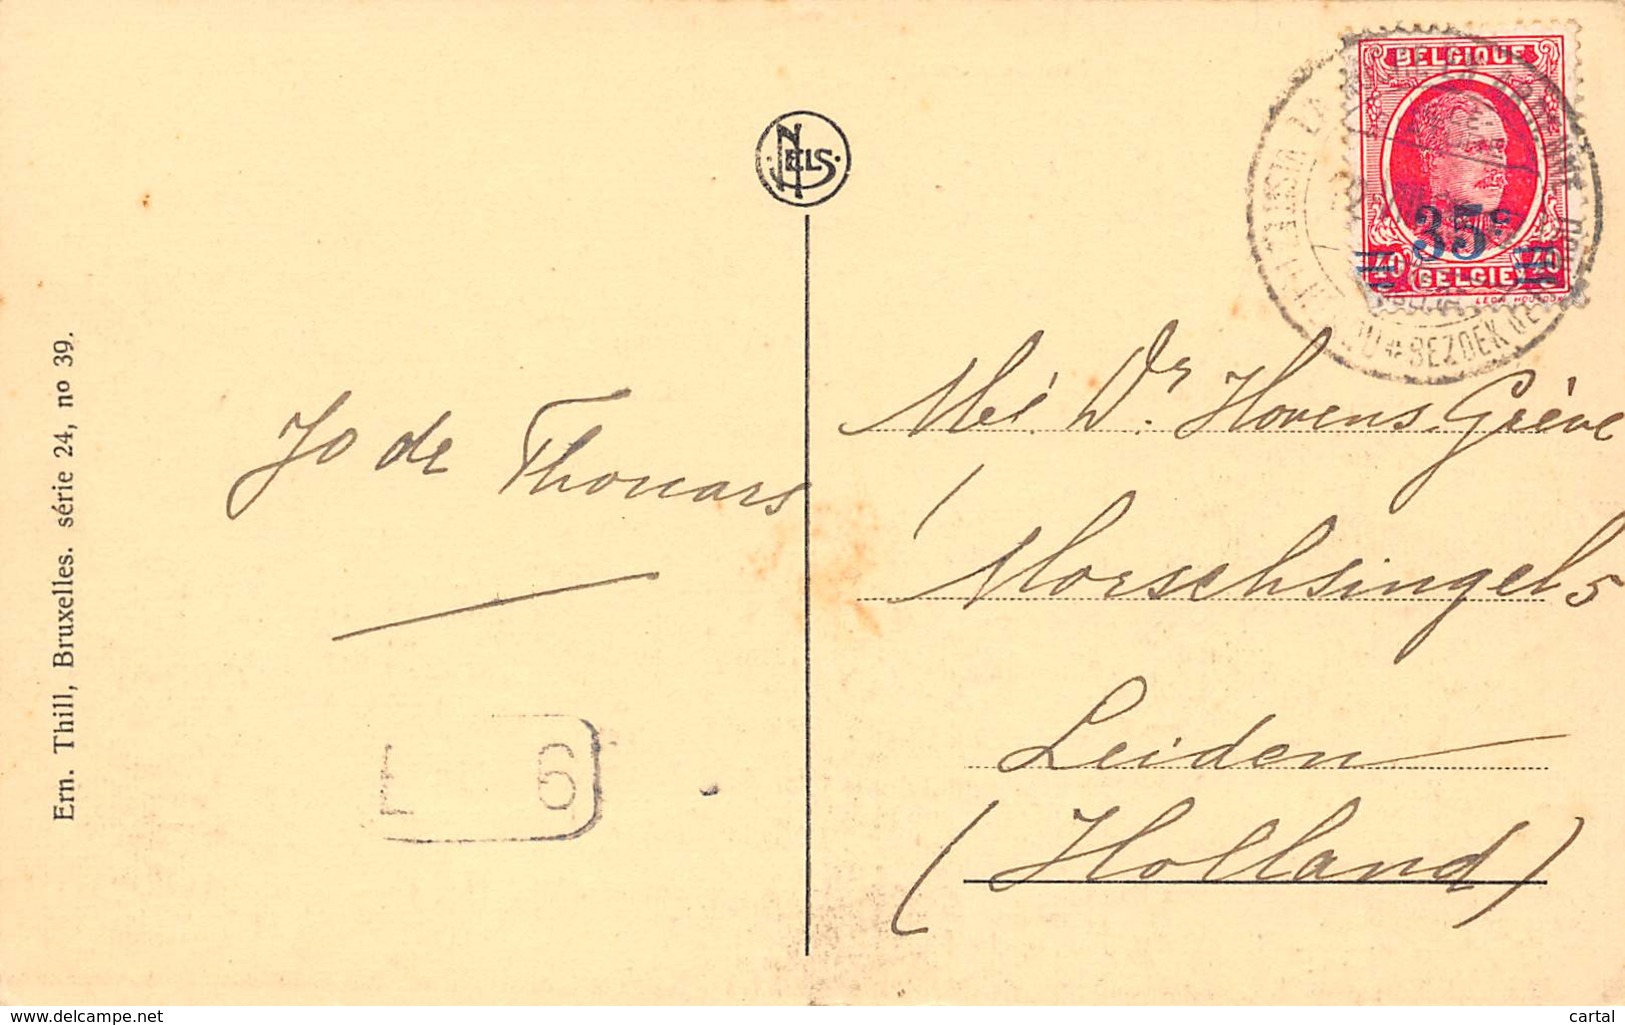 BELGIQUE
35c
40 BELGIE 40
NELS
Ern. Thill, Bruxelles. série 24, no 39.
Jo de Thouars
L 6
Mej. Dr. Hovens Grève
Morschsingel 5
Leiden
(Holland)
www.delcampe.net
cartal